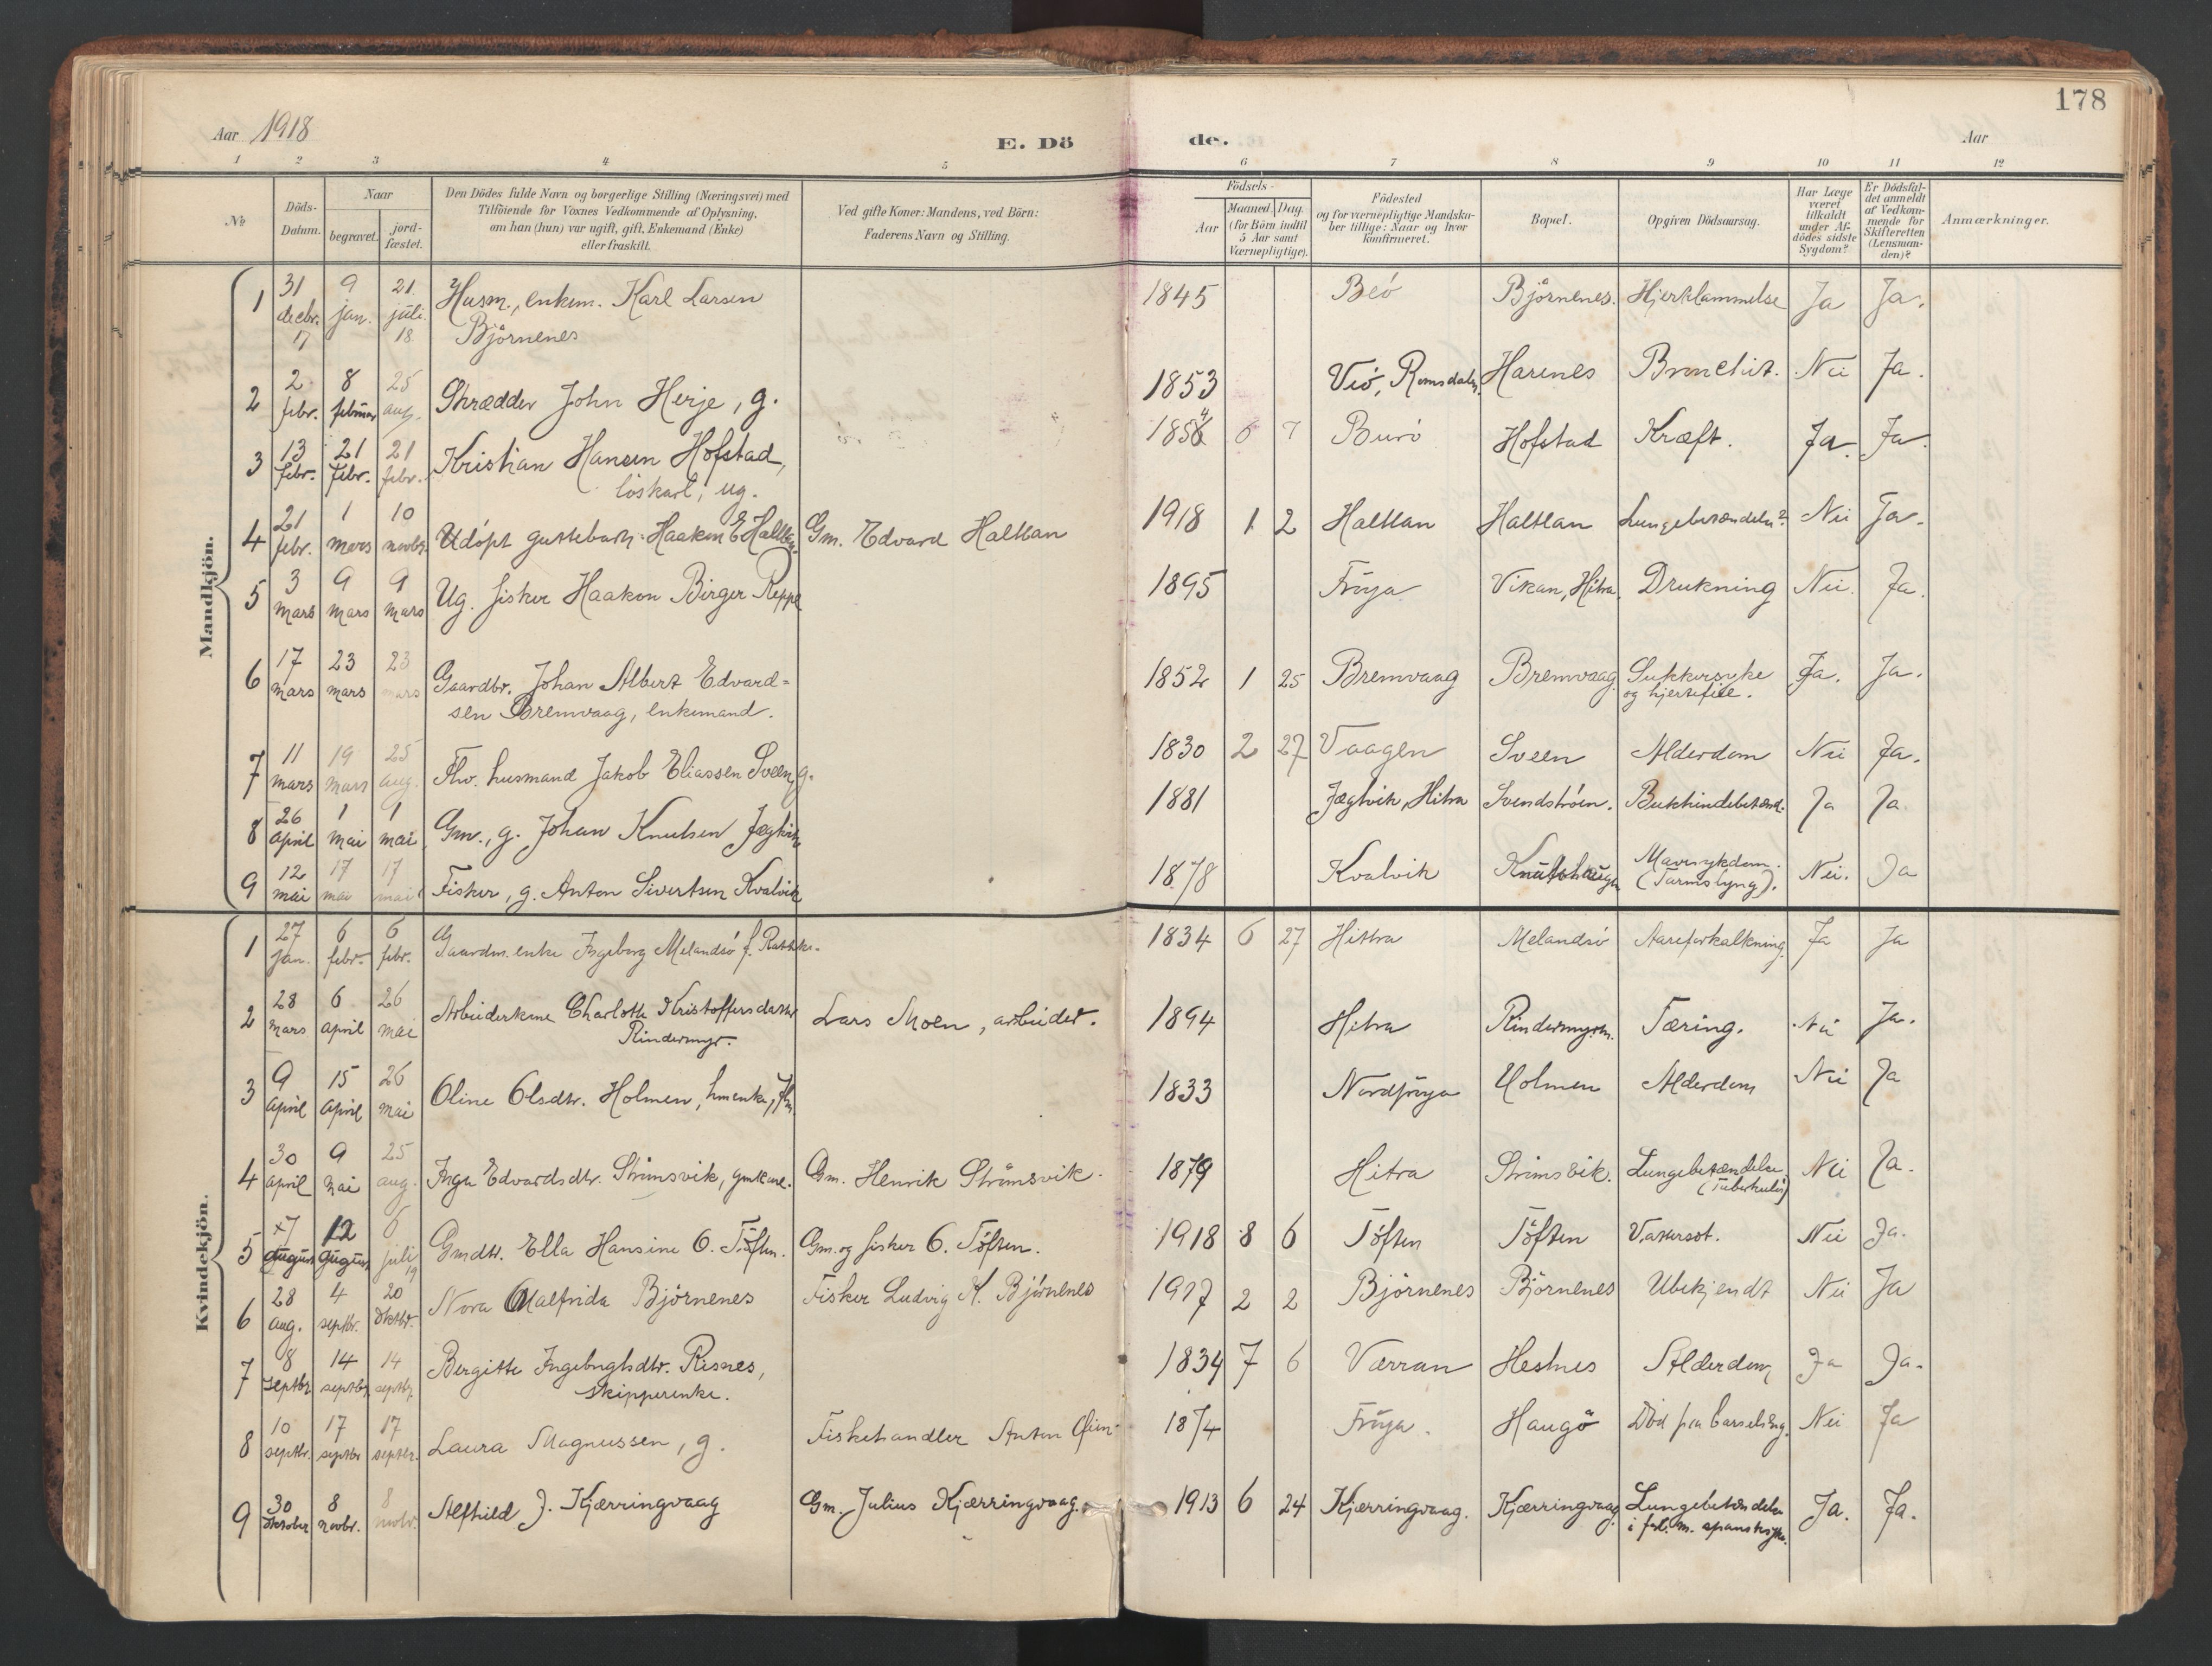 178
Aar 1918
E. Dö
de.
Aar
1 2 3 4 5 6 7 8 9 10 11 12
№
Döds-
Datum.
Naar
begravet.
jord-
fæstet.
Den Dödes fulde Navn og borgerlige Stilling (Næringsvei) med
Tilföiende for Voxnes Vedkommende af Oplysning,
om han (hun) var ugift, gift, Enkemand (Enke)
eller fraskilt.
Ved gifte Koner: Mandens, ved Börn:
Faderens Navn og Stilling.
Födsels-
Aar
Maaned. Dag.
(for Börn indtil
5 Aar samt
Værnepligtige).
Födested
og for værnepligtige Mandska-
ber tillige: Naar og hvor
konfirmeret.
Bopæl.
Opgiven Dödsaarsag.
Har Læge
været
tilkaldt
under Af-
dödes sidste
Sygdom?
Er Dödsfal-
det anmeldt
af Vedkom-
mende for
Skifteretten
(Lensman-
den)?
Anmærkninger.
Mandkjön.
1 31 decbr. 17 9 jan. 21. juli 18 Husm., enkem. Karl Larsen
Björnenes
1845 Beö Björnenes. Hjerklammelse Ja Ja.
2 2 febr. 8 februar 25 aug. Skrædder John Herje, g.
1853 Veö, Romsdalen Harenes Bronchit. Nei Ja.
3 13 febr. 21 febr. 21 febr. Kristian Hansen Hofstad,
löskarl, ug.
1854 6 7 Burö Hofstad Kræft. Ja. Ja.
4 21 febr. 1 mars 10 novbr. Udöpt guttebarn Haakon E Haltlan Gm. Edvard Haltlan
1918 1 2 Haltlan Haltlan Lungebetændelse? Nei Ja.
5 3 mars 9 mars 9 mars Ug. fisker Haakon Birger Reppe
1895 Fröya Vikan, Hitra. Drukning Nei. Ja.
6 17 mars 23 mars 23 mars Gaardbr. Johan Albert Edvard=
sen Bremvaag, enkemand.
1852 1 25 Bremvaag Bremvaag Sukkersyke
og hjertefeil. Ja. Ja.
7 11 mars 19 mars 25 aug. Fhv. husmand Jakob Eliassen Sveen, g.
1830 2 27 Vaagen Sveen Alderdom Nei Ja.
8 26 april 1 mai 1 mai Gm., g. Johan Knutsen Jægtvik
1881 Jægtvik, Hitra Svendströen. Bukhindebetænd. Ja Ja.
9 12 mai 17 mai 17 mai Fisker, g. Anton Sivertsen Kvalvik
1878 Kvalvik Knutshaugen Mavesykdom.
(Tarmslyng). Nei. Ja
Kvindekjön.
1 27 jan. 6 febr. 6 febr. Gaardm. enke Ingeborg Melandsö f.
1834 6 27 Hittra Melandsö Aareforkalkning. Ja Ja
2 28 mars 6 april 26 mai Arbeiderkone Charlotte Kristoffersdatter
Rindermyr. Lars Moen, arbeider.
1894 Hitra Rindermyren. Tæring. Nei Ja.
3 9 april 15 april 26 mai Oline Olsdtr. Holmen, hmenke,
1833 Nordfröya Holmen Alderdom Nei Ja
4 30 april 9 mai 25 aug. Inga Edvardsdtr. Strömsvik, gmkone. Gm. Henrik Strömsvik.
1879 Hitra Strömsvik. Lungebetændelse
(Tuberkulös) Nei Ja.
5 7 august 12 august 6 juli 19 Gmdtr. Ella Hansine O. Töften. Gm. og fisker O. Töften.
1918 8 6 Töften Töften Vatersot. Nei Ja.
6 28 aug. 4 septbr. 20 oktbr. Nora Malfrida Björnenes Fisker Ludvig K. Björnenes
1917 2 2 Björnenes Björnenes Ubekjendt Nei Ja
7 8 septbr. 14 septbr. 14 septbr. Bergitte Ingebrigtsdtr. Risnes,
skipperenke.
1834 7 6 Værran Hestnes Alderdom Ja Ja.
8 10 septbr. 17 septbr. 17 septbr. Laura Magnussen, g. Fiskehandler Anton
1874 Fröya. Haugö Död fra barselseng. Nei Ja
9 30 oktober 8 novbr. 8 novbr. Alfhild J. Kjærringvaag Gm. Julius Kjærringvaag.
1913 6 24 Kjærringvaag. Kjærringvaag. Lungebetændelse
i forb. m. spansksyke. Ja. Ja.